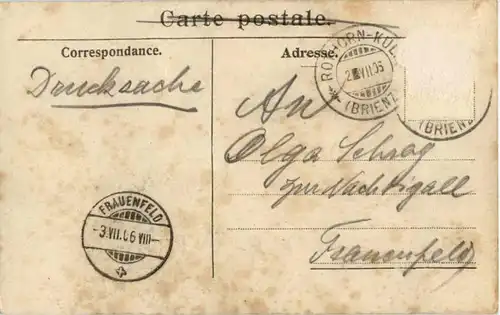 Carte postale.
Correspondance.
Adresse.
Drucksache
An
Olga Schrag
zur Nachtigall
Frauenfeld
ROTHORN-KUL
2 VII 06
(BRIENZ
(BRIENZ
FRAUENFELD
-3.VII.06 VIII-